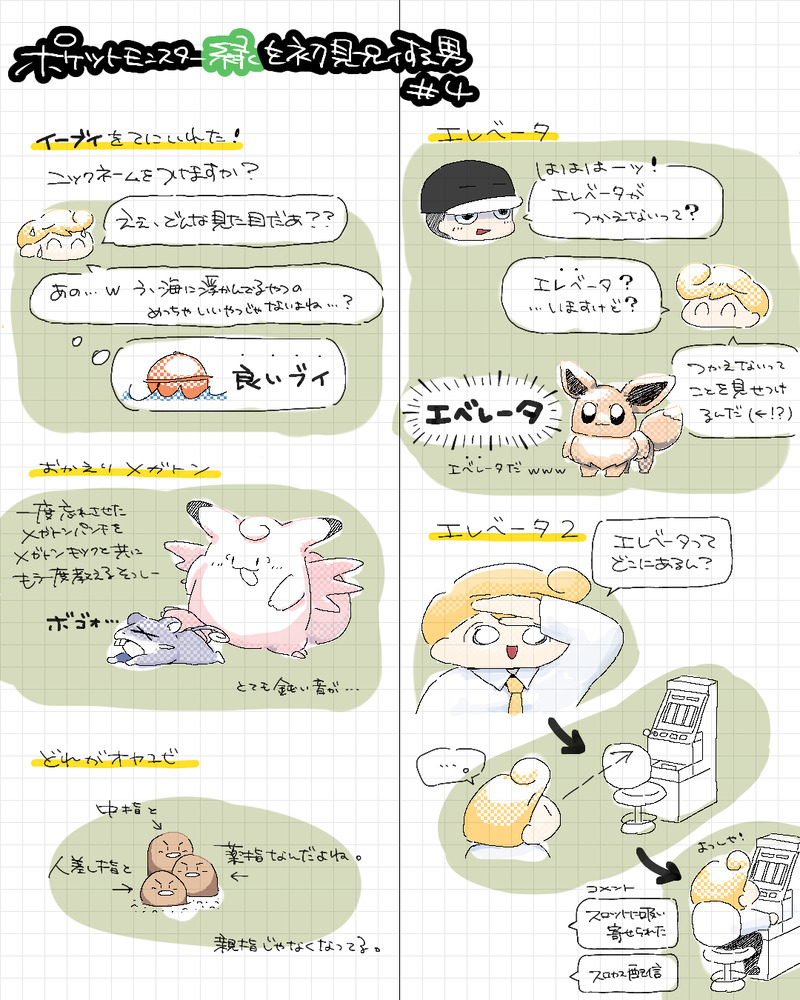 ポケットモンスター緑を初見プレイする男
#4
イーブイをてにいれた!
ニックネームをつけますか?
ええ、どんな見た目だあ??
あの…w う、海に浮かんでるやつの
めっちゃいいやつじゃないよね…?
良いブイ
おかえりメガトン
一度忘れさせた
メガトンパンチを
メガトンキックと共に
もう一度教えるぞっしー
ボゴォ…
とても鈍い音が…
どれがオヤユビ
中指と
人差し指と
薬指なんだよね。
親指じゃなくなってる。
エレベータ
はははーッ!
エレベータが
つかえないって?
エレベータ?
…いますけど?
つかえないって
ことを見せつけ
るんだ(←!?)
エベレータ
エベレータだwww
エレベータ2
エレベータって
どこにあるん?
…。
よっしゃ!
コメント
スロットに吸い
寄せられた
スロカス配信